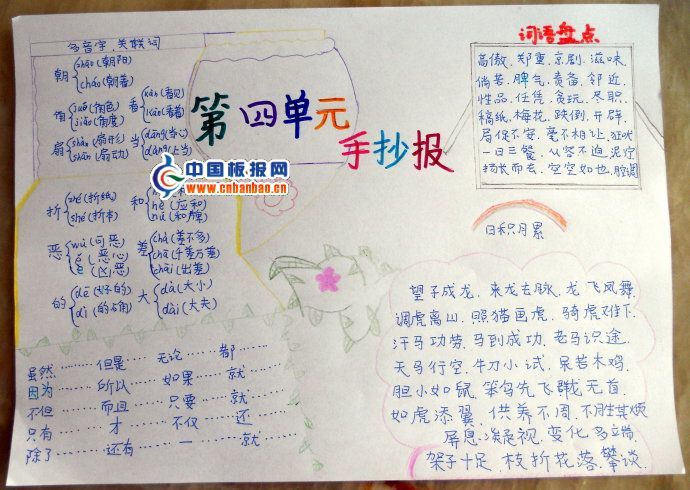 多音字、关联词
朝 zhāo (朝阳)
cháo (朝着)
角 jué (角色)
jiǎo (角度)
看 kàn (看见)
kān (看着)
扇 shàn (扇形)
shān (扇动)
当 dāng (当心)
dàng (上当)
折 zhé (折纸)
shé (折本)
和
hè (应和)
hú (和牌)
恶 wù (可恶)
ě (恶心)
è (凶恶)
差 chà (差不多)
chā (千差万差)
chāi (出差)
的 dē (好的)
dì (的角)
大 dà (大小)
dài (大夫)
虽然……但是 无论……都
因为……所以 如果……就
不但……而且 只要……就
只有……才 不仅……还
除了……还有 一……就
第四单元
手抄报
中国板报网
www.cnbanbao.cn
词语盘点
高傲、郑重、京剧、滋味、
倘若、脾气、责备、邻近、
性品、任凭、贪玩、尽职、
稿纸、梅花、跌倒、开辟、
局促不安、毫不相让、狂吠
一日三餐、从容不迫、泥泞
扬长而去、空空如也、腔调
日积月累
望子成龙、来龙去脉、龙飞凤舞、
调虎离山、照猫画虎、骑虎难下、
汗马功劳、马到成功、老马识途、
天马行空、牛刀小试、呆若木鸡、
胆小如鼠、笨鸟先飞、群龙无首、
如虎添翼、供养不周、不胜其烦
屏息凝视、变化多端、
架子十足、枝折花落、攀谈、